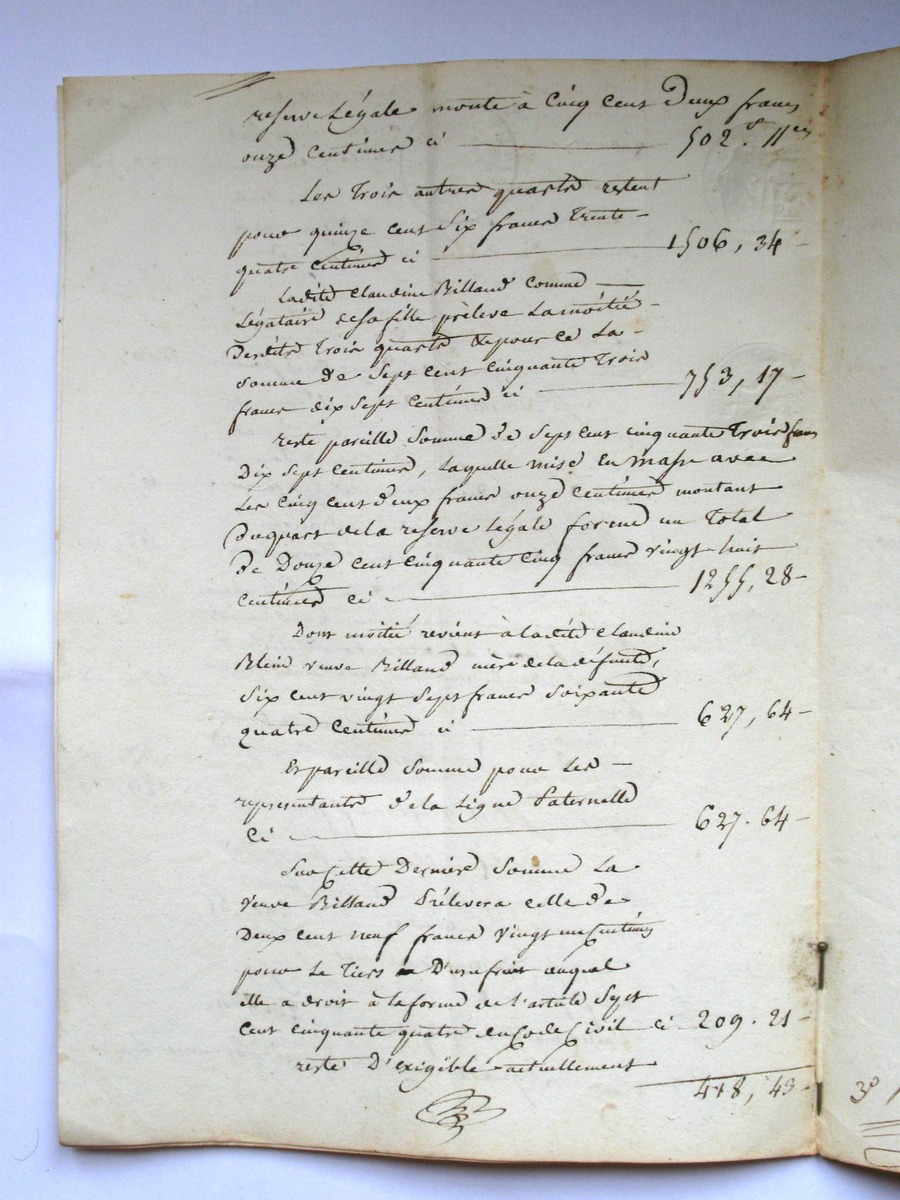 reserve Légale monte à Cinq cent Deux francs
onze Centimes ci 502f. 11ces
Les Trois autres quarts restent
pour quinze cent Six francs Trente
quatre Centimes ci 1506, 34
Ladite Claudine Billaud comme
Légataire de sa fille prélève La moitié
Desdits Trois quarts & pour ce La
Somme de Sept cent Cinquante Trois
francs dix Sept Centimes ci 753, 17
reste pareille Somme de Sept cent Cinquante Trois francs
Dix Sept Centimes, Laquelle mise En Masse avec
Les Cinq cent deux francs onze Centimes montant
Du quart de la reserve Légale forme un Total
de Douze cent Cinquante Cinq francs vingt huit
Centimes ci 1255, 28
Dont moitié revient à Ladite Claudine
Blein veuve Billaud mère de la défunte,
Six cent vingt Sept francs Soixante
quatre Centimes ci 627, 64
Et pareille Somme pour Les
representants de la Ligne Paternelle
Ci 627. 64
Sur Cette Dernière Somme La
veuve Billaud Prélevera celle de
Deux cent neuf francs Vingt un Centimes
pour Le Tiers D'usufruit auquel
elle a droit à la forme de L'article Sept
Cent Cinquante quatre du Code Civil ci 209. 21
reste D'exigible actuellement
418, 43
3o